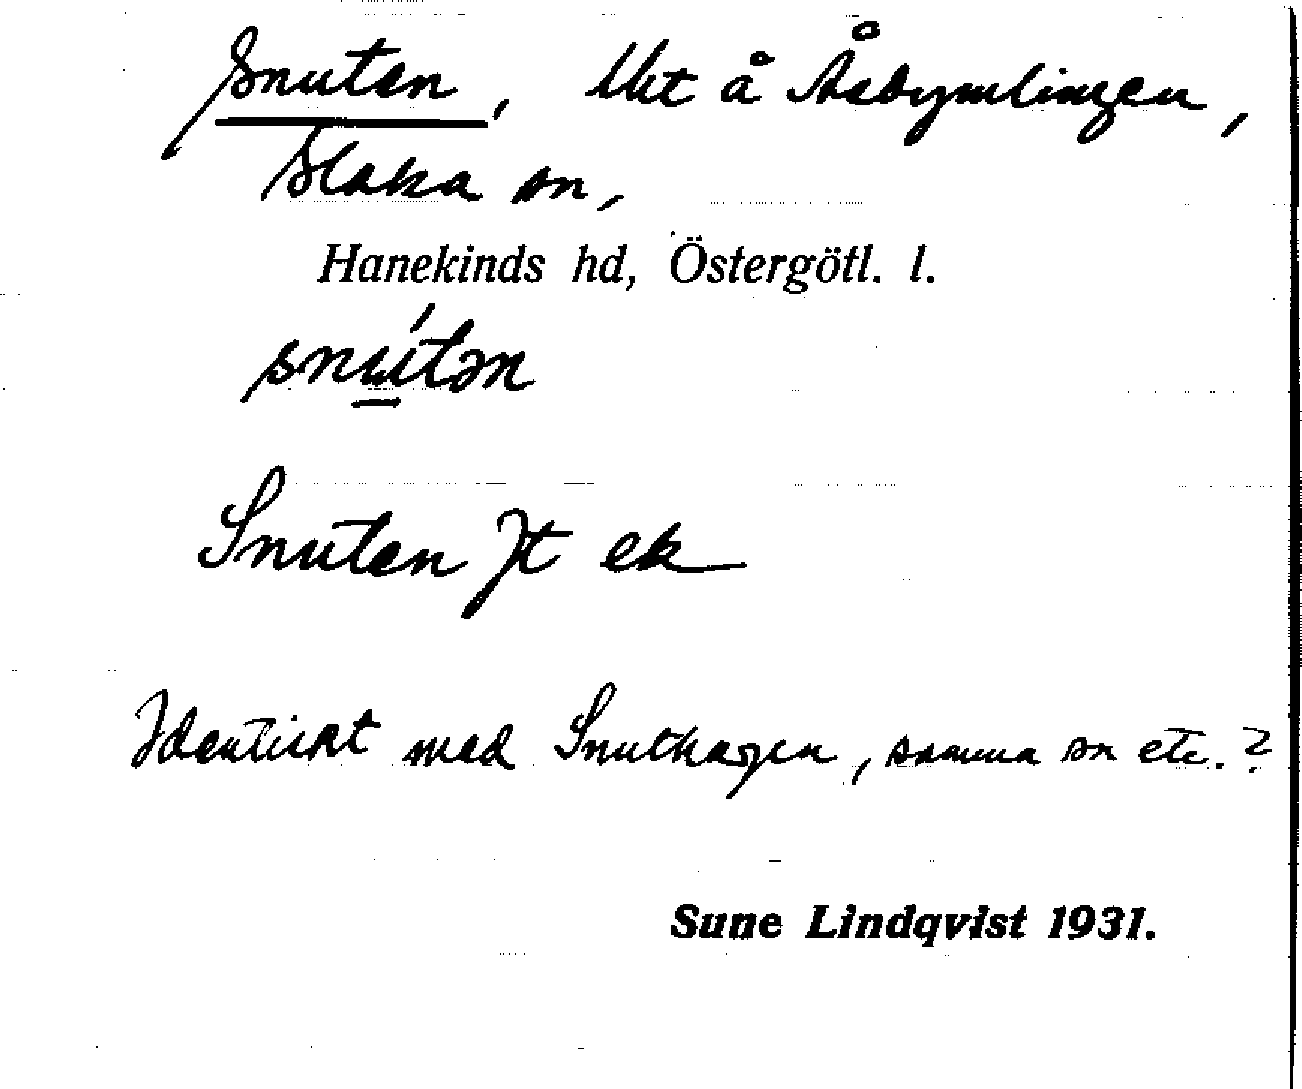 Snuten, Utt å Åsbymlingen,
Slaka sn,
Hanekinds hd, Östergötl. l.
snú̲tən
Snuten Jt ek
Identiskt med Snuthagen, samma sn etc.?
Sune Lindqvist 1931.